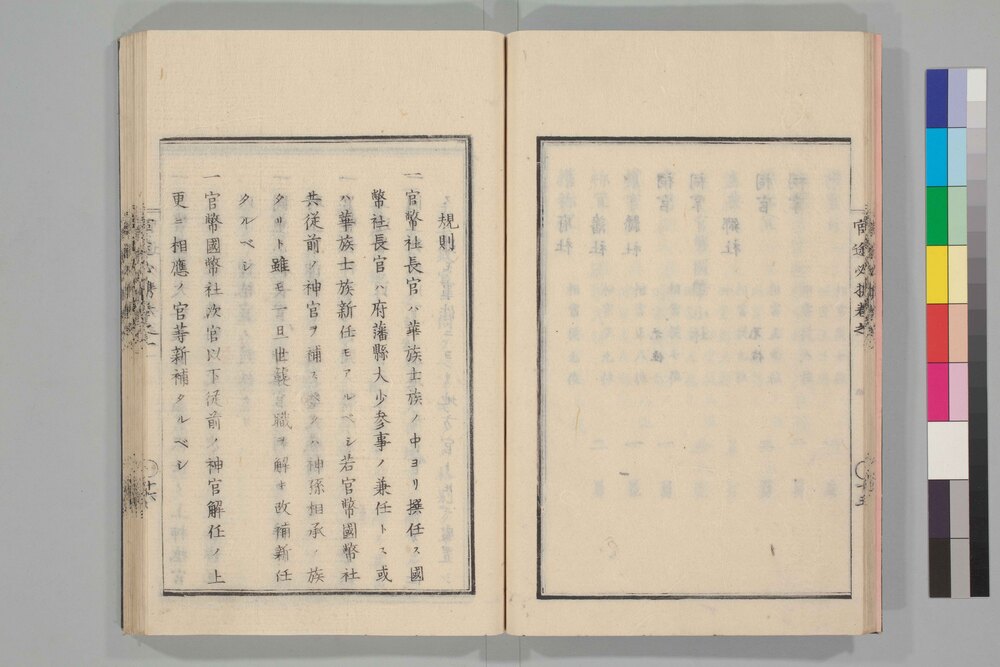 官途必携 卷之一
十五
規則
一官幣社長官ハ華族士族ノ中ヨリ撰任ス國
幣社長官ハ府藩縣大少參事ノ兼任トス或
ハ華族士族新任モアルベシ若官幣國幣社
共從前ノ神官ヲ補スル者ハ神孫相承ノ族
タリト雖モ一旦世襲ノ職ヲ解キ改補新任
タルベシ
一官幣國幣社次官以下從前ノ神官解任ノ上
更ニ相應ノ官等新補タルベシ
官途必携 卷之一
十六